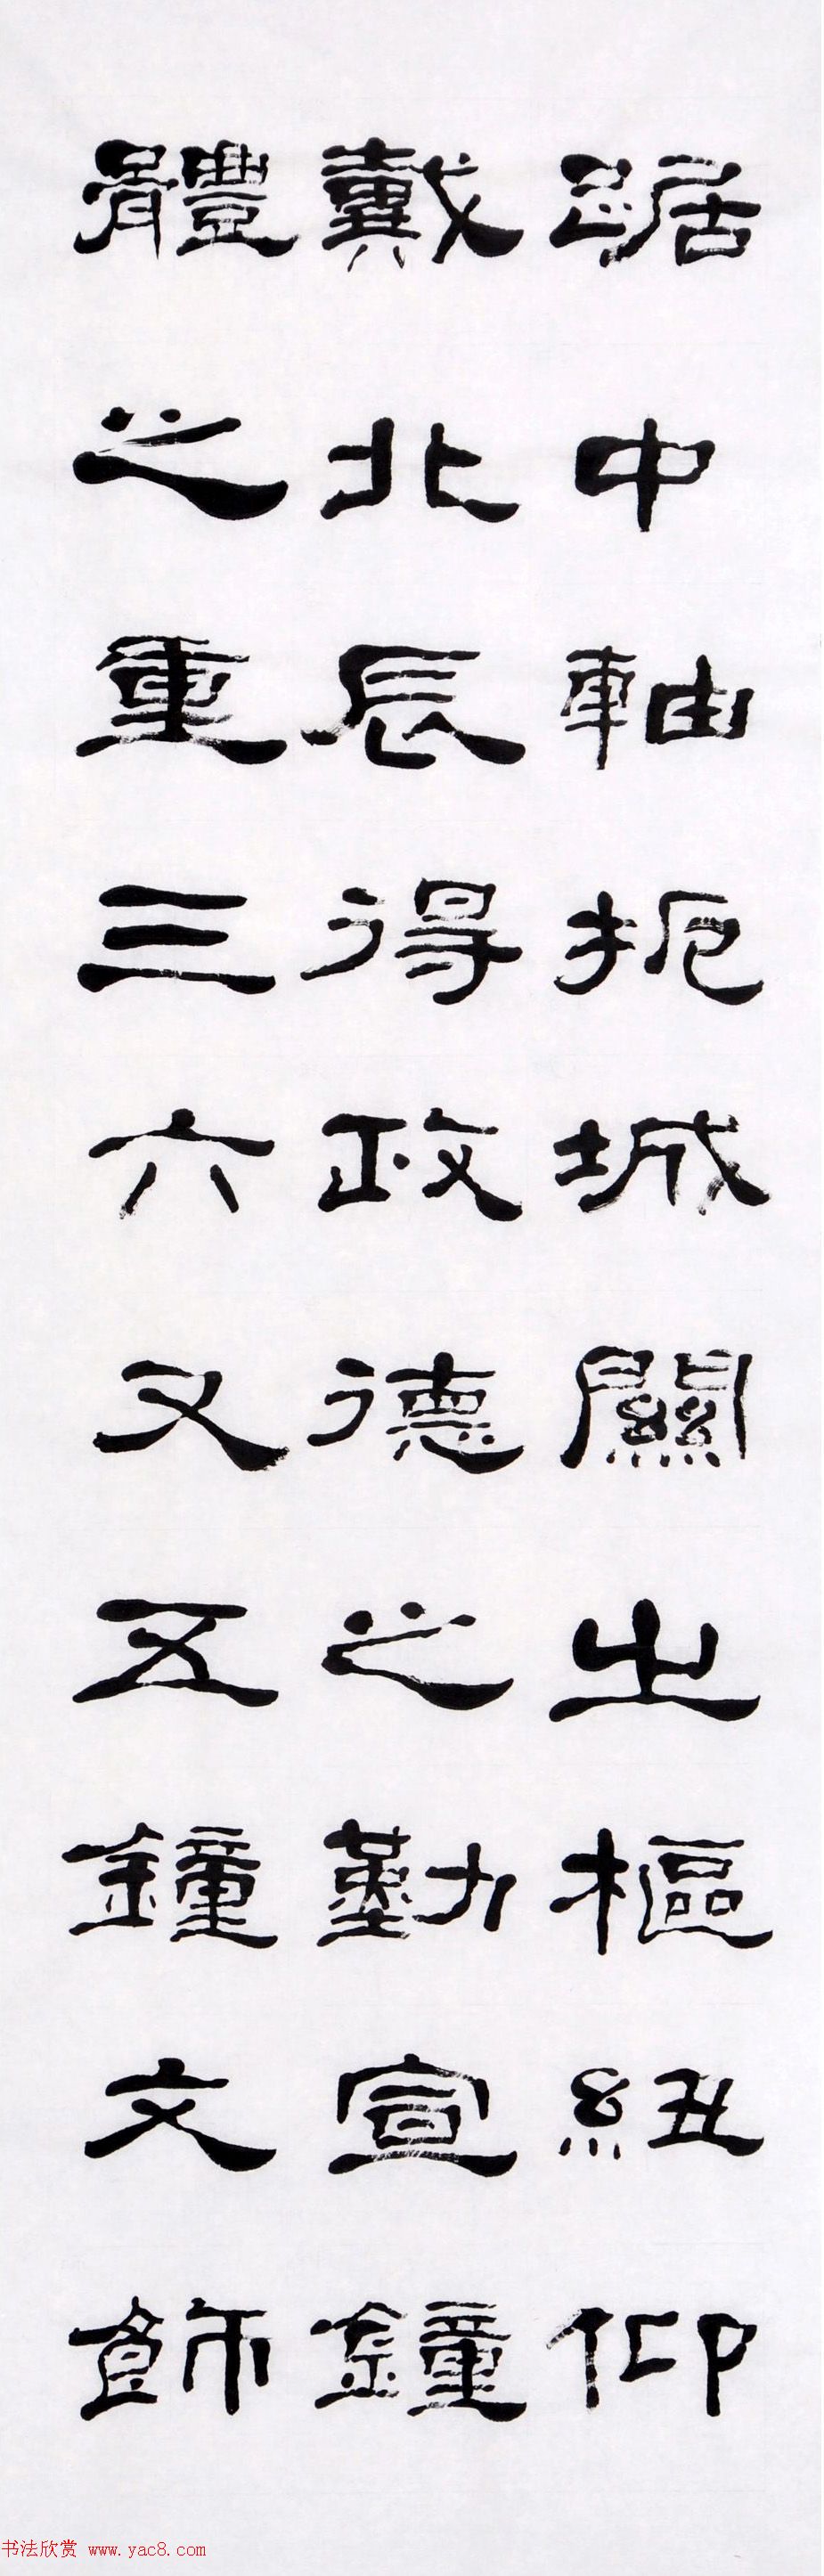 踞中軸扼城闕出樞紐仰
戴北辰得政德之勤宣鐘
體之重三六又五鐘文飾
书法欣赏 www.yac8.com